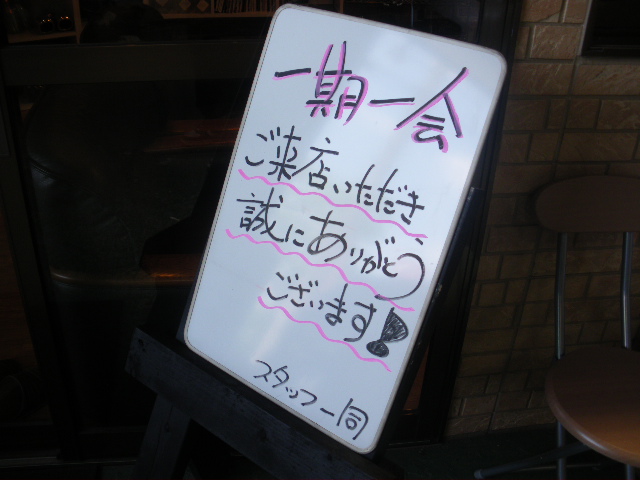 一期一会
ご来店いただき
誠にありがとう
ございます!
スタッフ一同